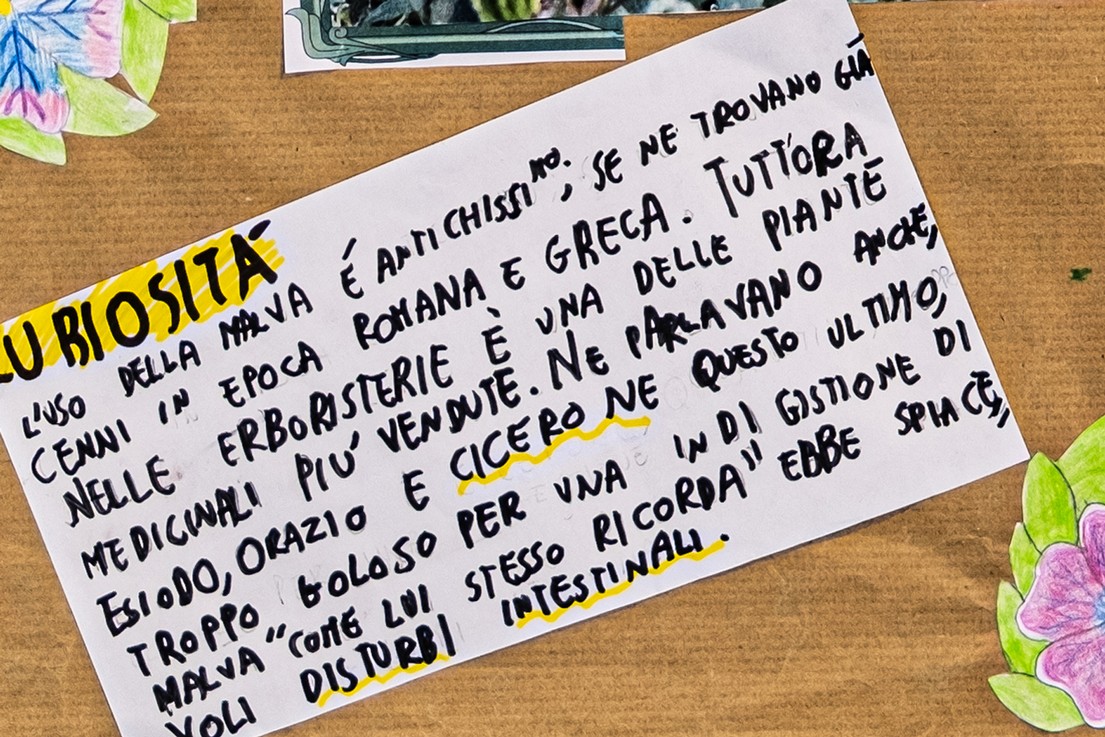 CURIOSITÀ
L'USO DELLA MALVA É ANTICHISSIMO, SE NE TROVANO GIÀ
CENNI IN EPOCA ROMANA E GRECA. TUTT'ORA
NELLE ERBORISTERIE È UNA DELLE PIANTE
MEDICINALI PIU' VENDUTE. NE PARLAVANO ANCHE,
ESIODO, ORAZIO E CICERO NE QUESTO ULTIMO,
TROPPO GOLOSO PER UNA IN DI GISTIONE DI
MALVA "COME LUI STESSO RICORDA" EBBE SPIACE,
VOLI DISTURBI INTESTINALI.